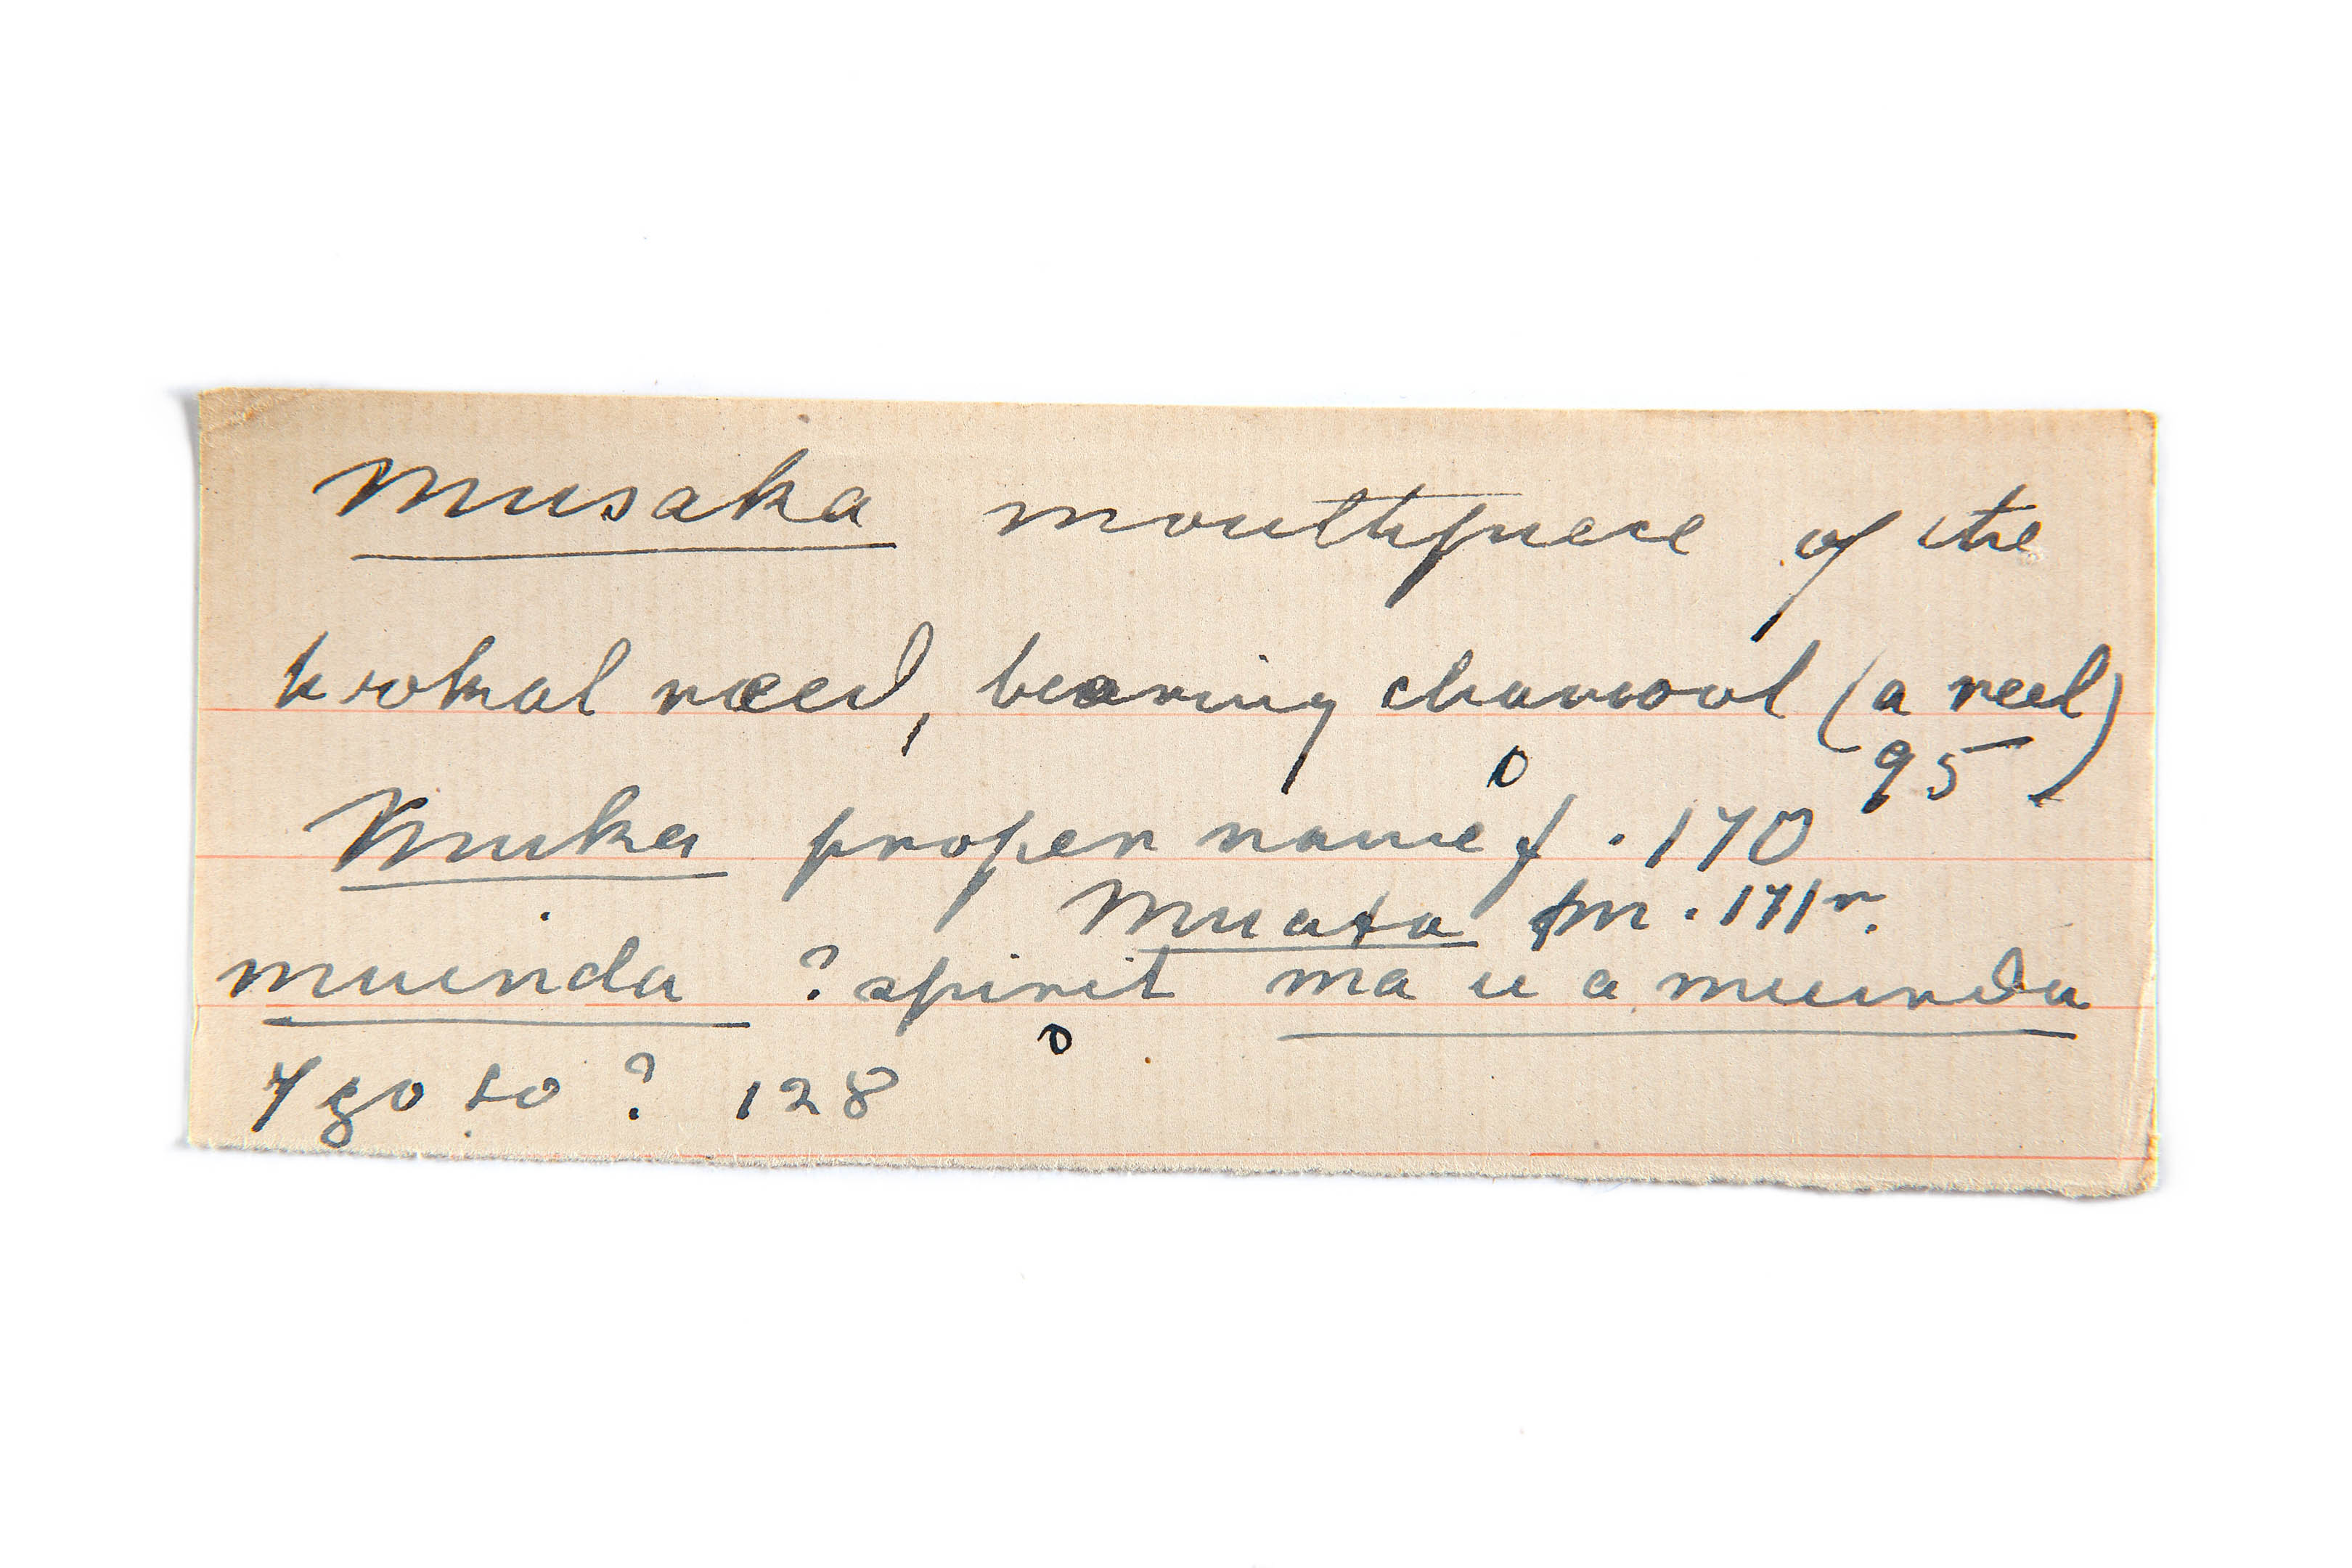 Musaka mouthpiece of the
reed, bearing charcool (a reed)
95
Muka proper name f. 170
Muata m. 171 r.
muinda ? spirit ma u a muinda
go to ? 128